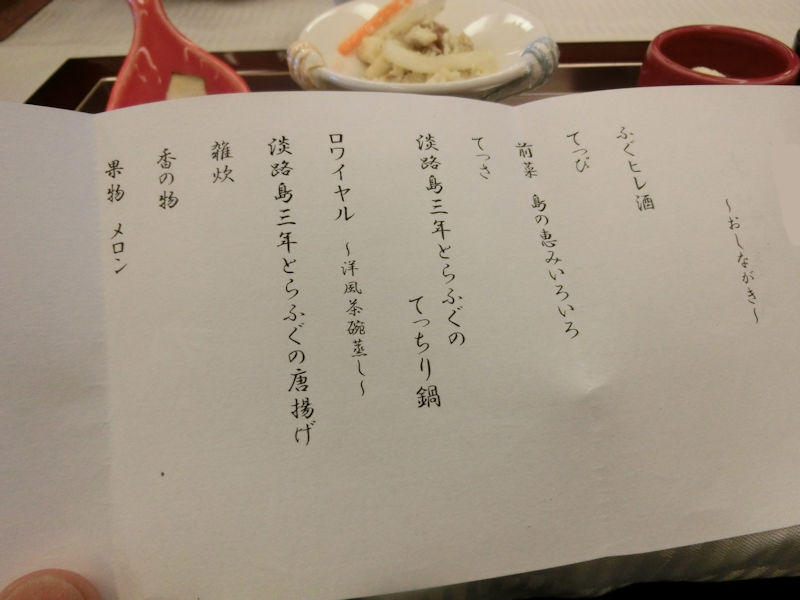 ～おしながき～
ふぐヒレ酒
てっぴ
前菜 島の恵みいろいろ
てっさ
淡路島三年とらふぐの
てっちり鍋
ロワイヤル ～洋風茶碗蒸し～
淡路島三年とらふぐの唐揚げ
雑炊
香の物
果物 メロン